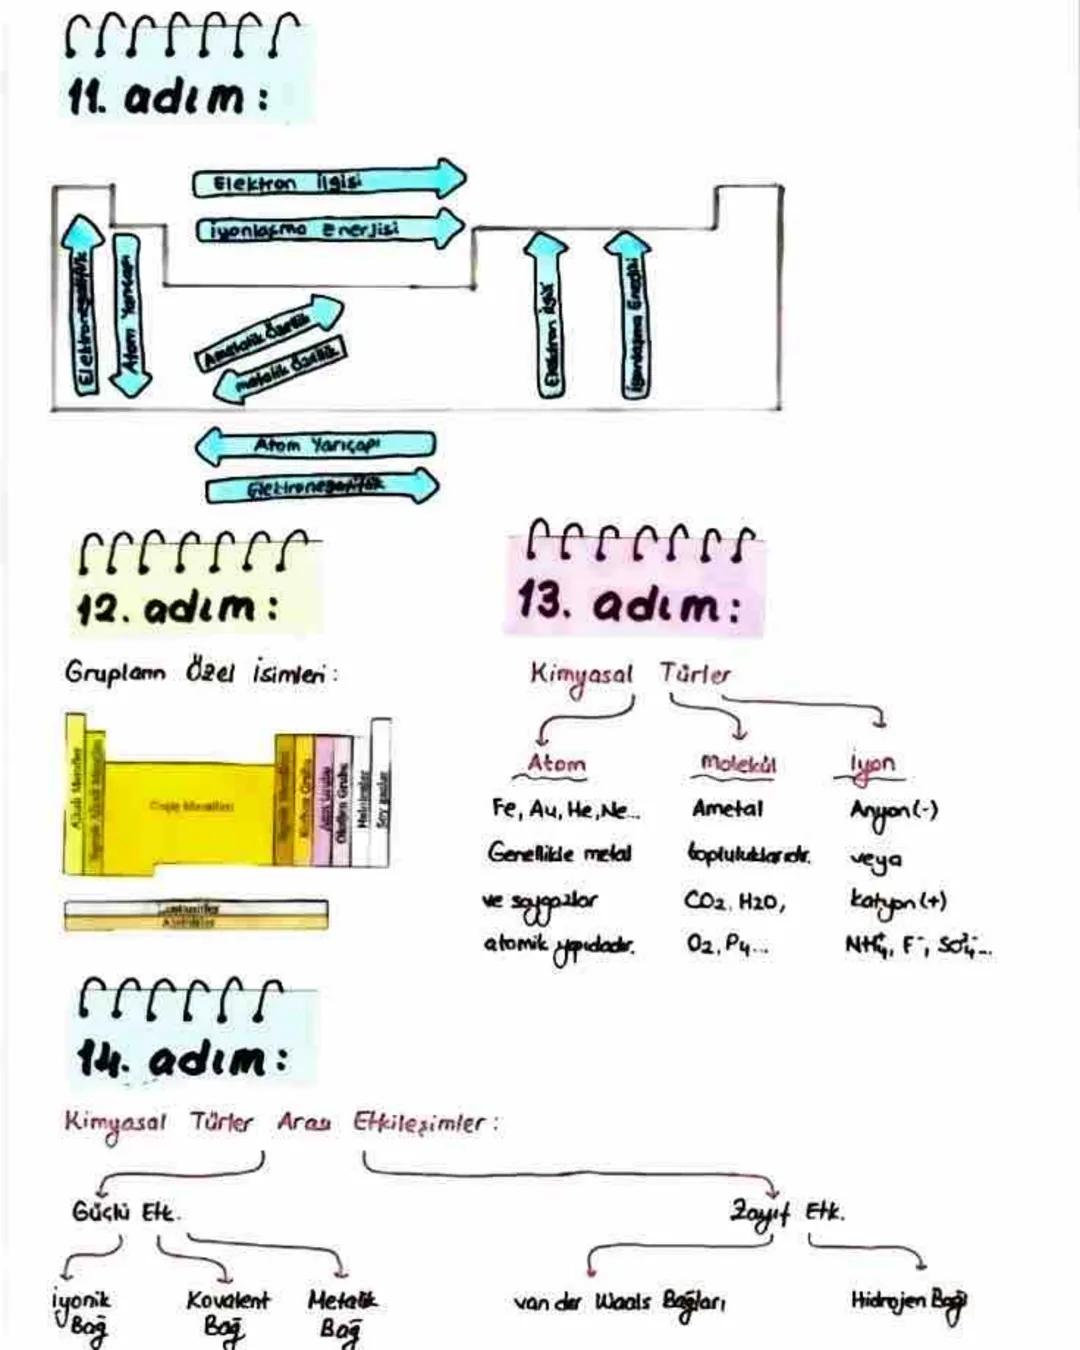 11. adım:
Elektron ilgisi
İyonlaşma Enerjisi
Elektronegatiflik
Atom Yarıçapı
Ametalik Özellik
metalik Özellik
Elektron ilgisi
İyonlaşma Enerjisi
Atom Yarıçapı
Elektronegatiflik
12. adım:
Grupların Özel isimleri:
Alkali Metaller
Toprak Alkali Metalleri
Geçiş Metalleri
Toprak Metalleri
Karbon Grubu
Azot Grubu
Oksijen Grubu
Halojenler
Soy gazlar
Lantanitler
Aktinitler
13. adım:
Kimyasal Türler
Atom
Fe, Au, He, Ne...
Genellikle metal
ve soygazlar
atomik yapıdadır.
Molekül
Ametal
topluluklarıdır.
CO2, H2O,
O2, P4...
İyon
Anyon(-)
veya
katyon(+)
NH₄⁺, F⁻, SO₄²⁻...
14. adım:
Kimyasal Türler Arası Etkileşimler:
Güçlü Etk.
Zayıf Etk.
iyonik
Bağ
Kovalent
Bağ
Metalik
Bağ
van der Waals Bağları
Hidrojen Bağı